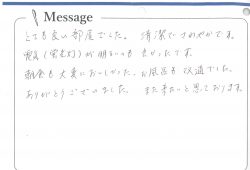 Message
とても良い部屋でした。清潔でさわやかです。
電気(蛍光灯)が明るいのも良かったです。
朝食も大変においしかった。お風呂も快適でした。
ありがとうございました。また来たいと思っております。